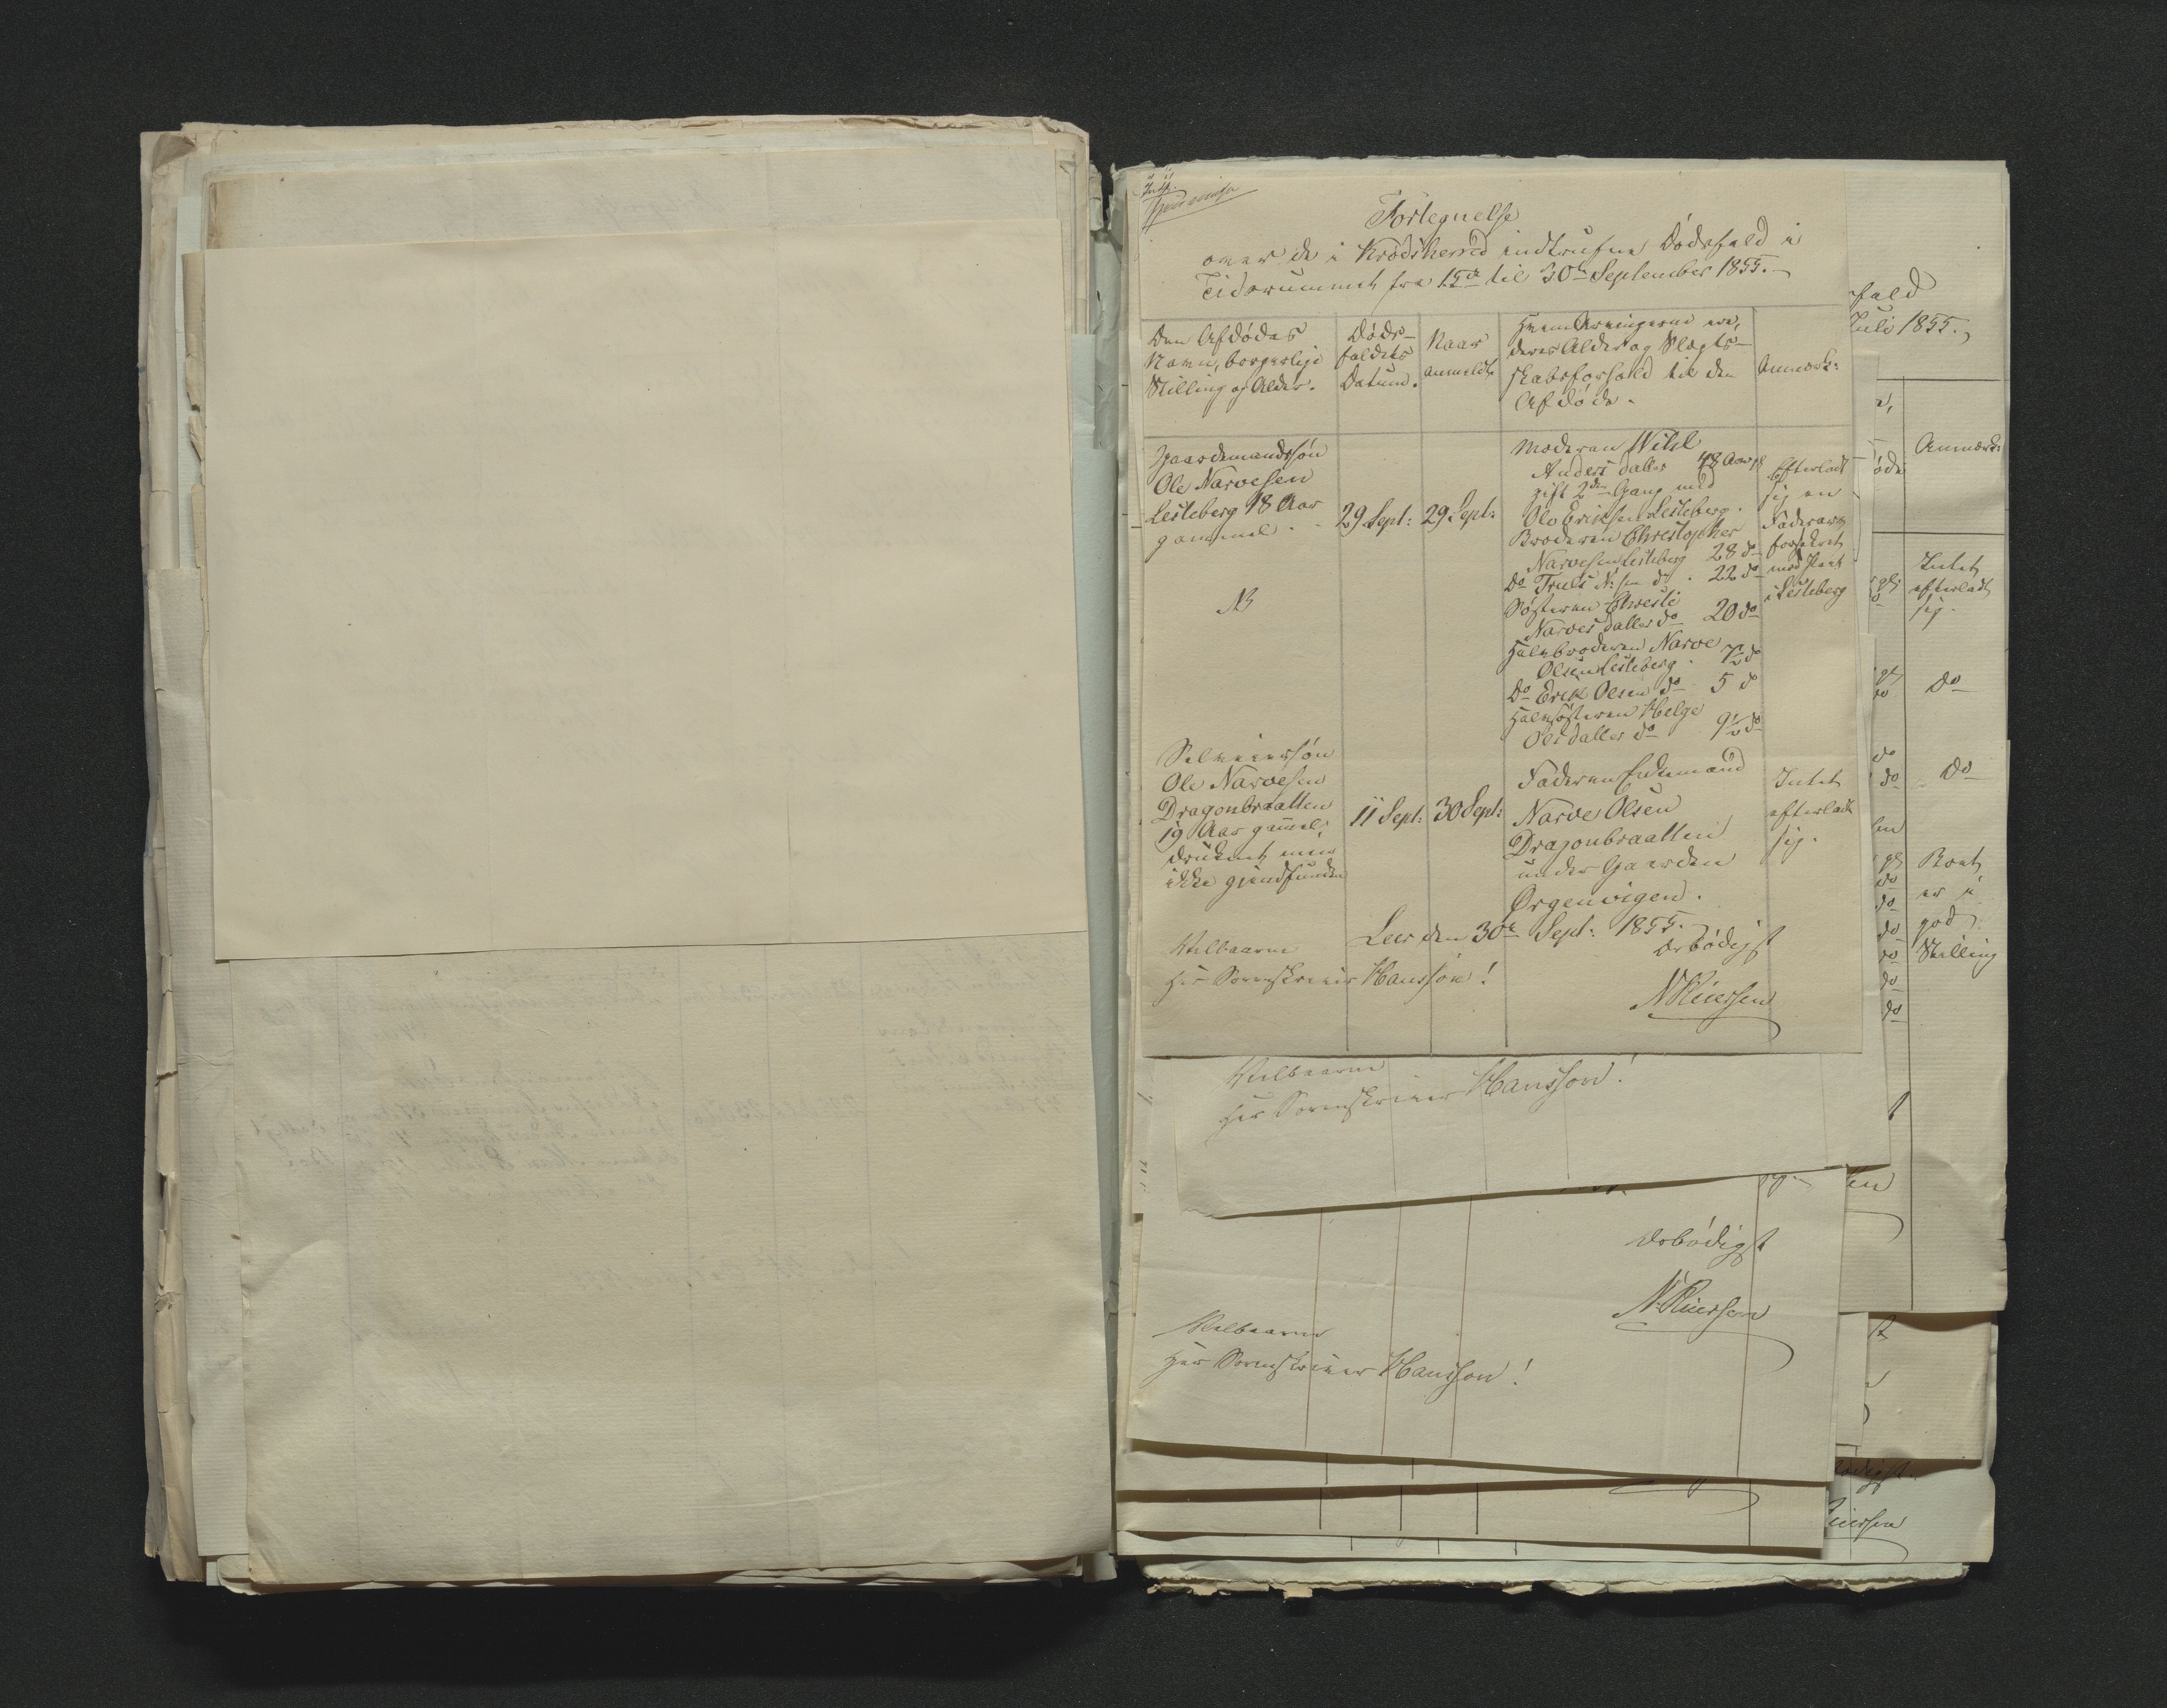 Fortegnelse
over de i Krødsherred indtrufne Dødsfald i
Tidsrummet fra 15de til 30te September 1855.
Den Afdødes
Navn, borgerlige
Stilling og Alder.
Døds-
faldets
Datum.
Naar
anmeldt
Hvem Arvingerne ere,
deres Alder og Slægt-
skabsforhold til den
Afdøde.
Anmærk:
Gaardemandssøn
Ole Narvesen
Lesteberg 18 Aar
gammel.
29 Sept:
29 Sept:
Moderen
Anders datter 48 Aar
gift 2den Gang med
Ole Eriksen Lesteberg.
Broderen Christopher
Narvesen Lesteberg 28 do
Do Truls N:sen do 22 do
Søsteren Chresti
Narves datter do 20 do
Halvbroderen Narve
Olsen Lesteberg 7½ do
Do Erik Olsen do 5 do
Halvsøsteren Helge
Olsdatter do 9½ do
Efterladt
sig en
Faderarv
forsikret
med Pant
i Lesteberg
NB
Selveiersøn
Ole Narvesen
Dragonbraatten
19 Aar gammel,
druknet men
ikke gjenfunden
11 Sept:
30 Sept:
Faderen Enkemand
Narve Olsen
Dragonbraatten
under Gaarden
Ørgenvigen.
Intet
efterladt
sig.
Leer den 30te Sept: 1855.
Ærbødigst
Velbaarne
Hr Sorenskriver Hansson!
Velbaarne
Her Sorenskriver Hansson!
Ærbødigst
Velbaarne
Her Sorenskriver Hansson!
fald
Juli 1855.
Anmærk:
Intet
efterladt
sig.
do
do
Boet
er i
god
Stilling